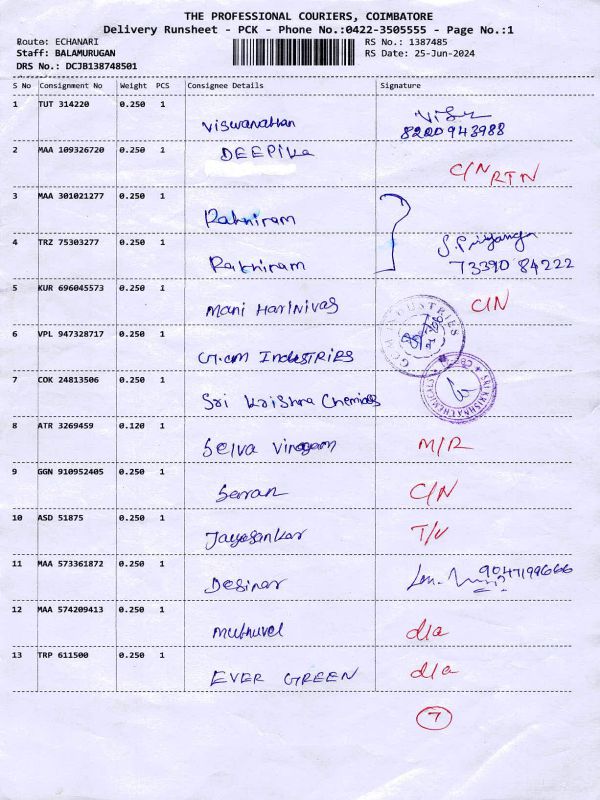 THE PROFESSIONAL COURIERS, COIMBATORE
Delivery Runsheet - PCK - Phone No.:0422-3505555 - Page No.:1
Route: ECHANARI RS No.: 1387485
Staff: BALAMURUGAN RS Date: 25-Jun-2024
DRS No.: DCJB138748501
S No Consignment No Weight PCS Consignee Details Signature
1 TUT 314220 0.250 1
Viswanathan
8220943988
2 MAA 109326720 0.250 1 DEEPIKa
C/N RTN
3 MAA 301021277 0.250 1
Rakhiram
4 TRZ 75303277 0.250 1 S.Priyanga
Rakhiram 73390 84222
5 KUR 696045573 0.250 1
Mani Harinivas C/N
6 VPL 947328717 0.250 1
G.E.M INDUSTRIES
G.E.M INDUSTRIES
7 COK 24813506 0.250 1
Sri Krishna Chemicals
SRI KRISHNA CHEMICALS
8 ATR 3269459 0.120 1
Selva Vinagam M/R
9 GGN 910952405 0.250 1
C/N
10 ASD 51875 0.250 1
Jayasankar T/V
11 MAA 573361872 0.250 1 9047199666
Desiner
12 MAA 574209413 0.250 1
Muthuvel d/a
13 TRP 611500 0.250 1
EVER GREEN d/a
7